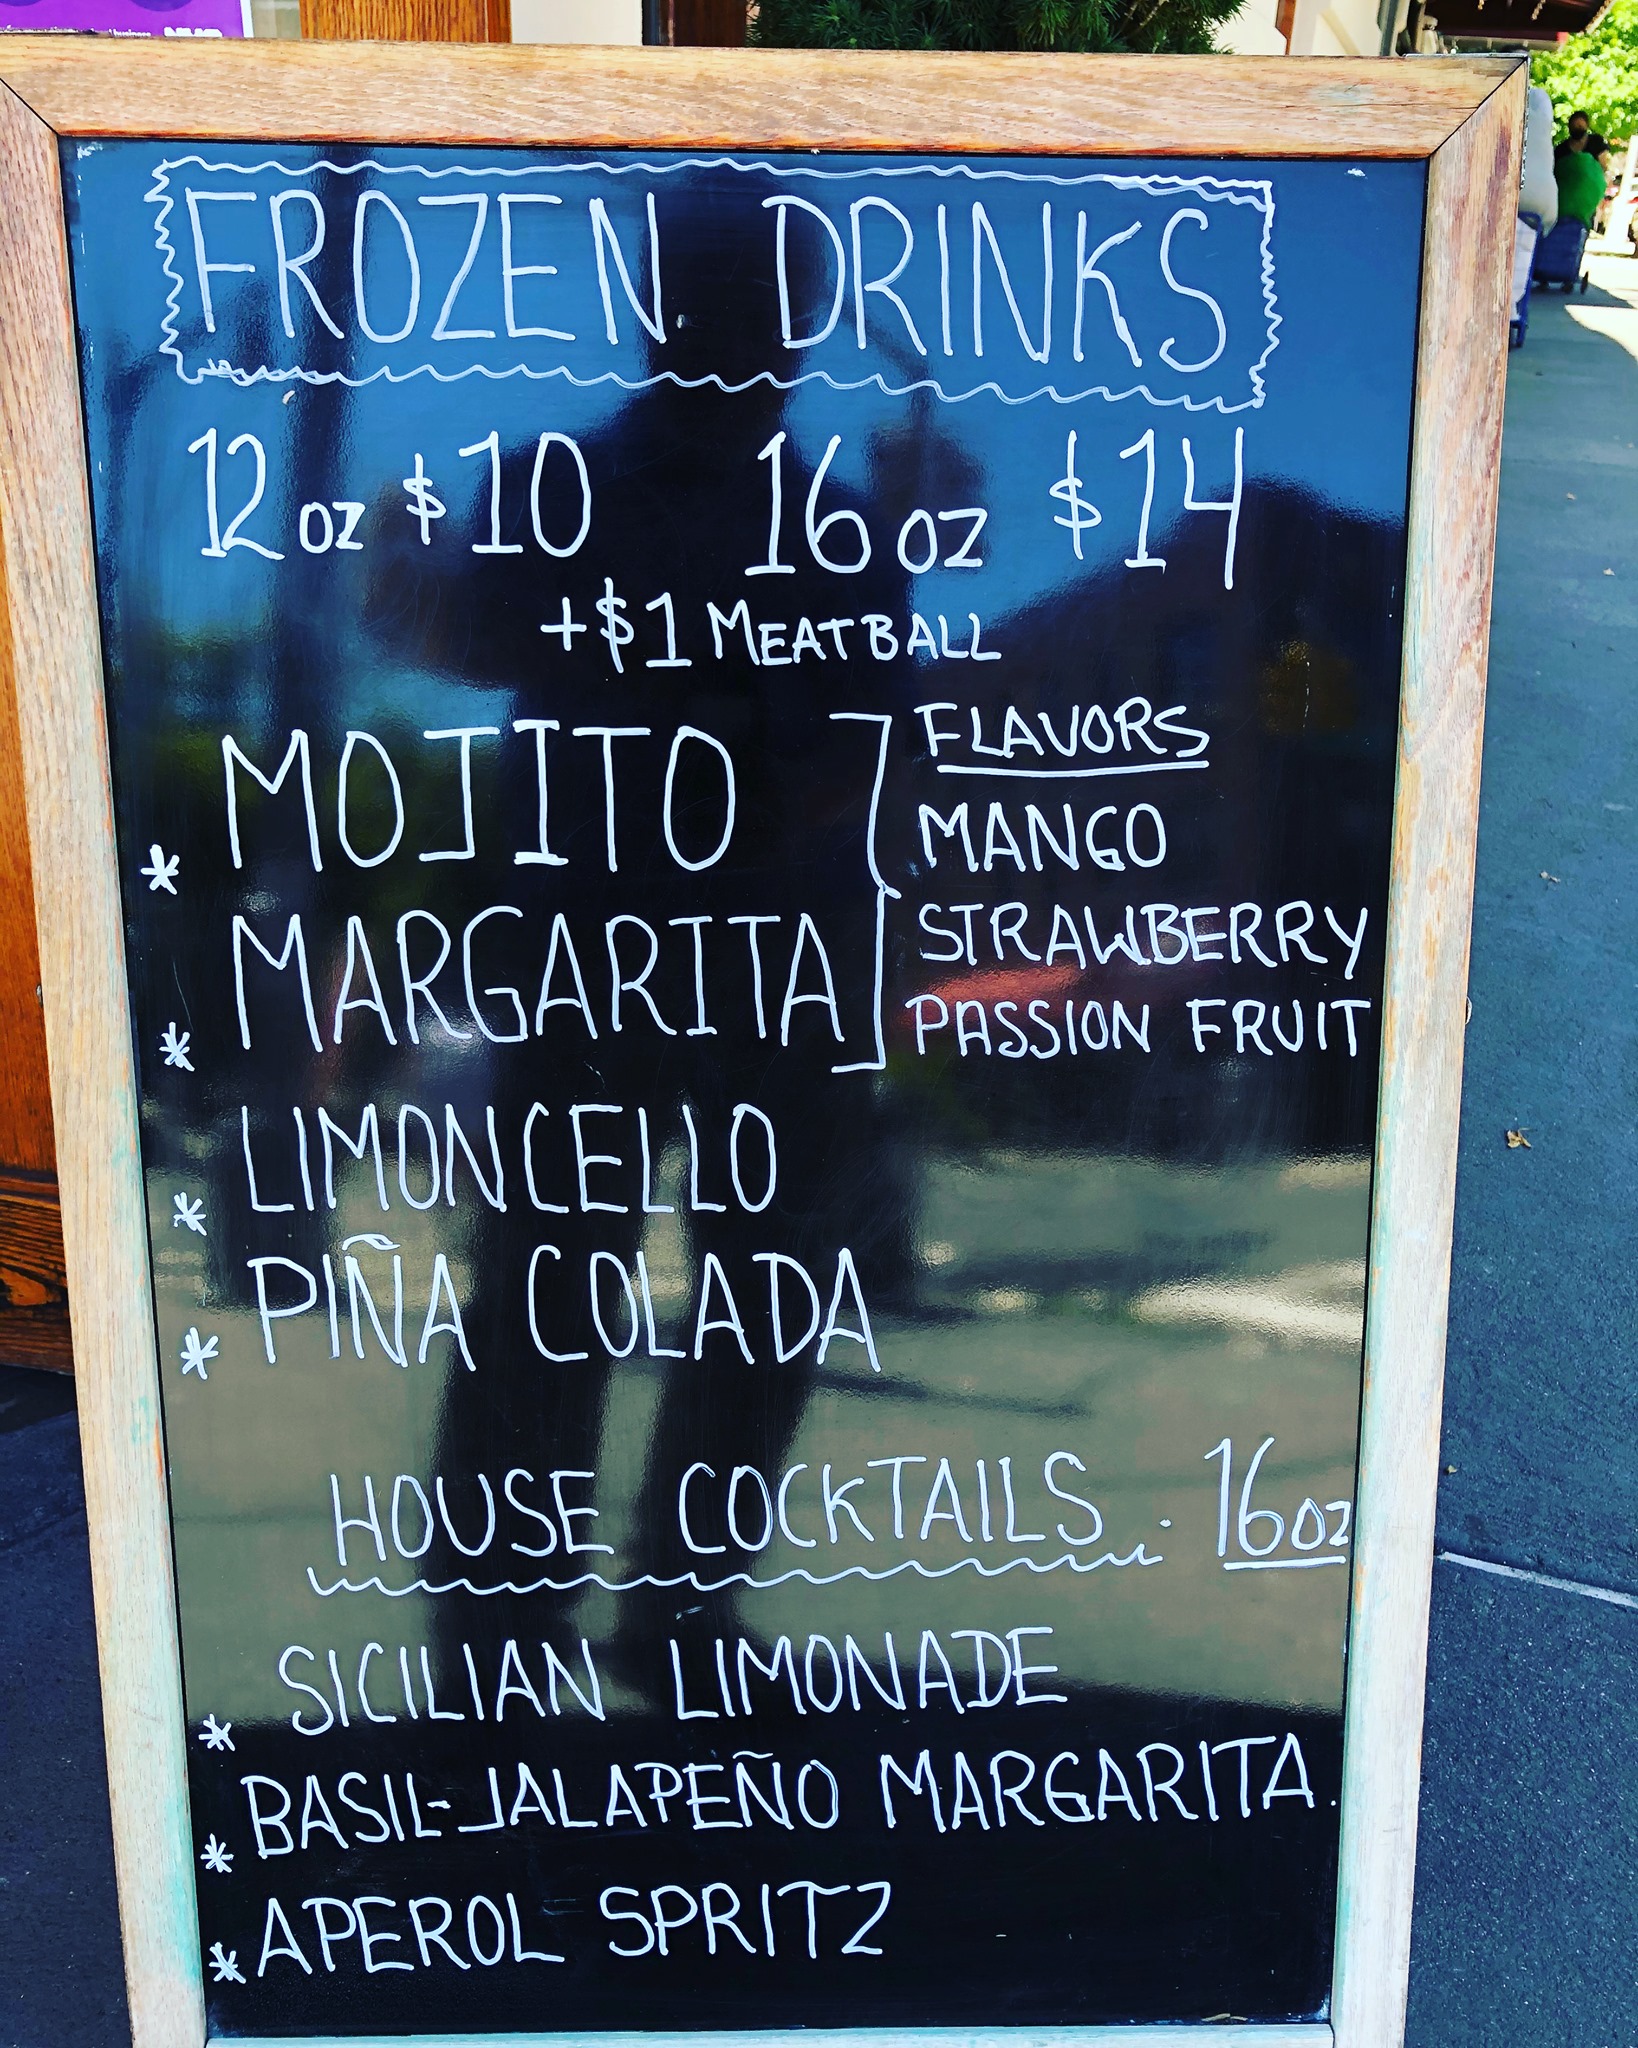 FROZEN DRINKS
12 oz $10 16 oz $14
+$1 MEATBALL
* MOJITO
* MARGARITA
FLAVORS
MANGO
STRAWBERRY
PASSION FRUIT
* LIMONCELLO
* PIÑA COLADA
HOUSE COCKTAILS . 16 oz
* SICILIAN LIMONADE
* BASIL-JALAPEÑO MARGARITA.
* APEROL SPRITZ